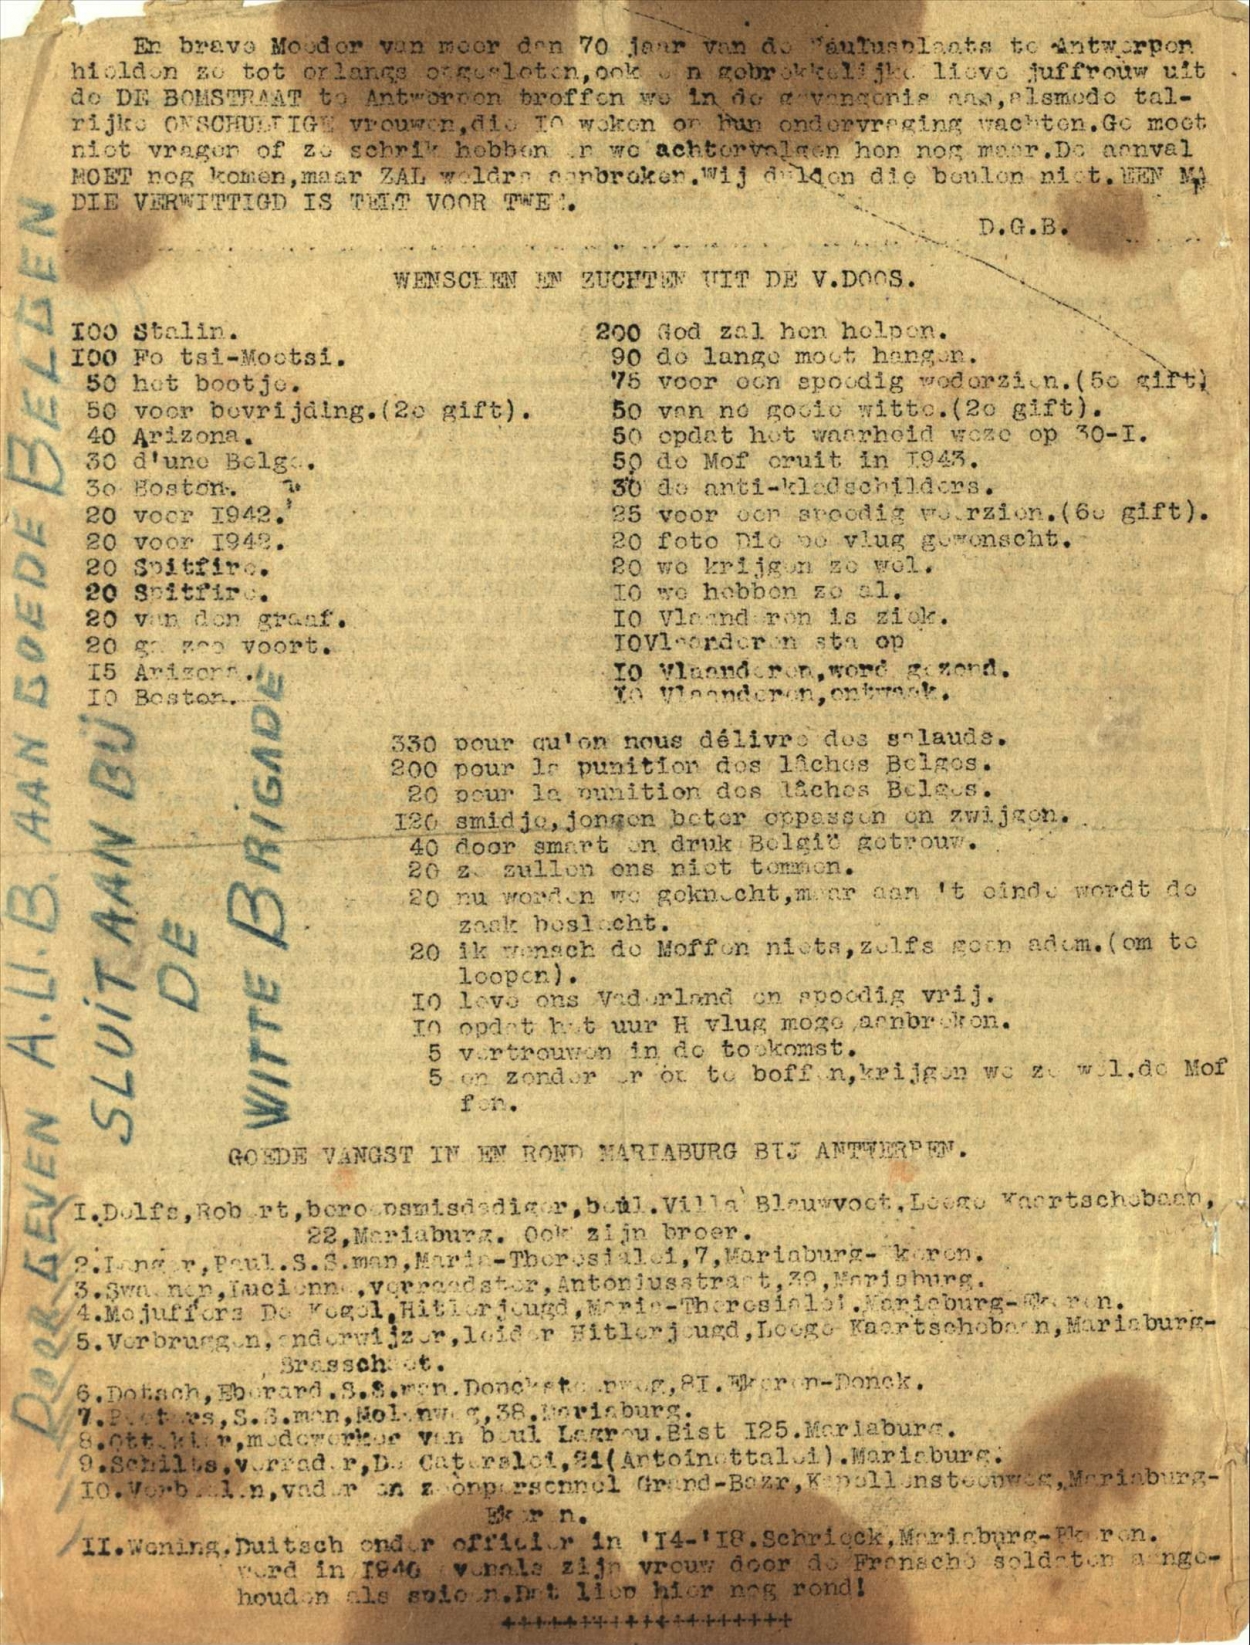 En brave Moeder van meer dan 70 jaar van de Paulusplaats te Antwerpen
hielden ze tot onlangs opgesloten,ook een gebrekkelijke lieve juffrouw uit
de DE BOMSTRAAT te Antwerpen troffen we in de gevangenis aan,alsmede tal-
rijke ONSCHULDIGE vrouwen,die IO weken op hun ondervraging wachten.Ge moet
niet vragen of ze schrik hebben en we achtervolgen hen nog maar.De aanval
MOET nog komen,maar ZAL weldra aanbreken.Wij dulden die beulen niet.EEN MAN
DIE VERWITTIGD IS TELT VOOR TWEE.
D.G.B.
WENSCHEN EN ZUCHTEN UIT DE V.DOOS.
IOO Stalin.
IOO Fo tsi-Mootsi.
50 het bootje.
50 voor bevrijding.(2e gift).
40 Arizona.
30 d'une Belge.
30 Boston.
20 voor I942.
20 voor I942.
20 Spitfire.
20 Spitfire.
20 van den graaf.
20 ga zoo voort.
I5 Arizona.
IO Boston.
200 God zal hen helpen.
90 de lange moet hangen.
75 voor een spoedig wederzien.(5e gift)
50 van ne gooie witte.(2e gift).
50 opdat het waarheid weze op 30-I.
50 de Mof eruit in I943.
30 de anti-kladschilders.
25 voor een spoedig weerzien.(6e gift).
20 foto Die be vlug gewenscht.
20 we krijgen ze wel.
IO we hebben ze al.
IO Vlaanderen is ziek.
IOVlaanderen sta op
IO Vlaanderen,word gezond.
IO Vlaanderen,ontwaak.
330 pour qu'on nous délivre des salauds.
200 pour la punition des lâches Belges.
20 pour la punition des lâches Belges.
I20 smidje,jongen beter oppassen en zwijgen.
40 door smart en druk België getrouw.
20 ze zullen ons niet temmen.
20 nu worden we geknecht,maar aan 't einde wordt de
zaak beslecht.
20 ik wensch de Moffen niets,zelfs geen adem.(om te
loopen).
IO leve ons Vaderland en spoedig vrij.
IO opdat het uur H vlug moge aanbreken.
5 vertrouwen in de toekomst.
5 en zonder er op te boffen,krijgen we ze wel.de Mof
fen.
GOEDE VANGST IN EN ROND MARIABURG BIJ ANTWERPEN.
I.Delfs,Robert,beroepsmisdadiger,beul.Villa Blauwvoet,Leege Kaartschebaan,
22,Mariaburg. Ook zijn broer.
2.Langer,Paul.S.S.man,Maria-Theresialei,7,Mariaburg-Ekeren.
3.Swaenen,Lucienne,verraadster,Antoniusstraat,39,Mariaburg.
4.Mejuffers De Kegel,Hitlerjeugd,Maria-Theresialei.Mariaburg-Ekeren.
5.Verbruggen,onderwijzer,leider Hitlerjeugd,Leege Kaartschebaan,Mariaburg-
Brasschaet.
6.Dotsch,Eberard.S.S.man.Doncksteenweg,8I.Ekeren-Donck.
7.Peeters,S.S.man,Molenweg,38.Mariaburg.
8.Ottekier,medewerker van beul Lagrou.Bist I25.Mariaburg.
9.Schilts,verrader,De Caterslei,2I(Antoinettalei).Mariaburg.
IO.,vader en zoonpersonnel Grand-Bazr,Kapellensteenweg,Mariaburg-
Ekeren.
II.Woning.Duitsch onder officier in 'I4-'I8.Schrieck,Mariaburg-Ekeren.
werd in I940 evenals zijn vrouw door de Fransche soldaten aange-
houden als spioen.Dat liep hier nog rond!
+++++++++++++++++++++
DOORGEVEN A.U.B. AAN GOEDE BELGEN
SLUIT AAN BIJ
DE
WITTE BRIGADE